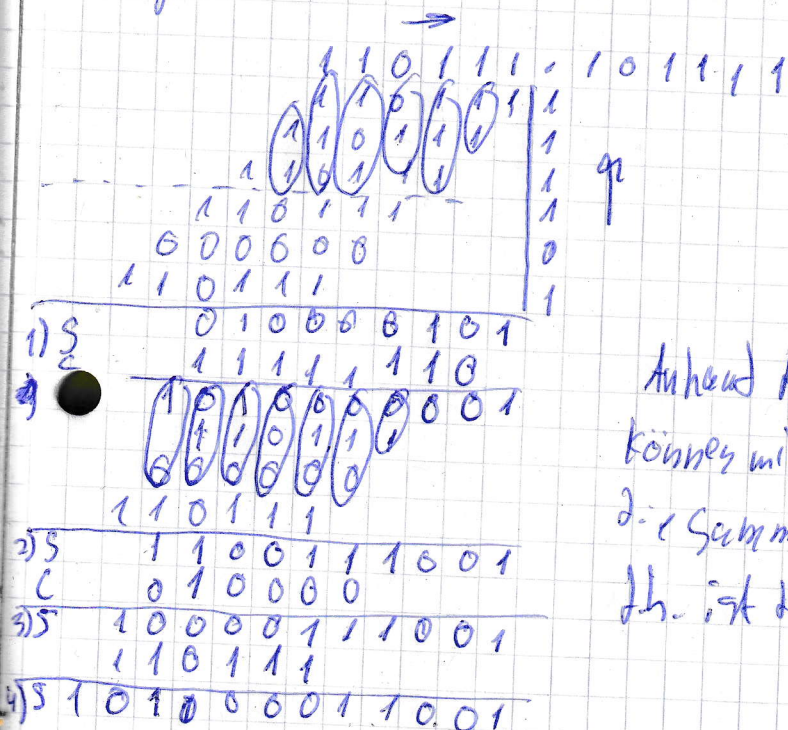 →
1 1 0 1 1 1 . 1 0 1 1 1 1
1 1 0 1 1 1 | 1
1 1 0 1 1 1 | 1
1 1 0 1 1 1 | 1
1 1 0 1 1 1 | 1
0 0 0 0 0 0 | 0
1 1 0 1 1 1 | 1
1) S 0 1 0 0 0 0 1 0 1
C 1 1 1 1 1 1 1 0
1 0 1 0 0 0 0 0 0 1
1 1 0 1 1 1
0 0 0 0 0 0
1 1 0 1 1 1
2) S 1 1 0 0 1 1 1 0 0 1
C 0 1 0 0 0 0
3) S 1 0 0 0 0 1 1 1 0 0 1
1 1 0 1 1 1
4) S 1 0 1 0 0 0 0 1 1 0 0 1
Anhand
können
die
dh. ist